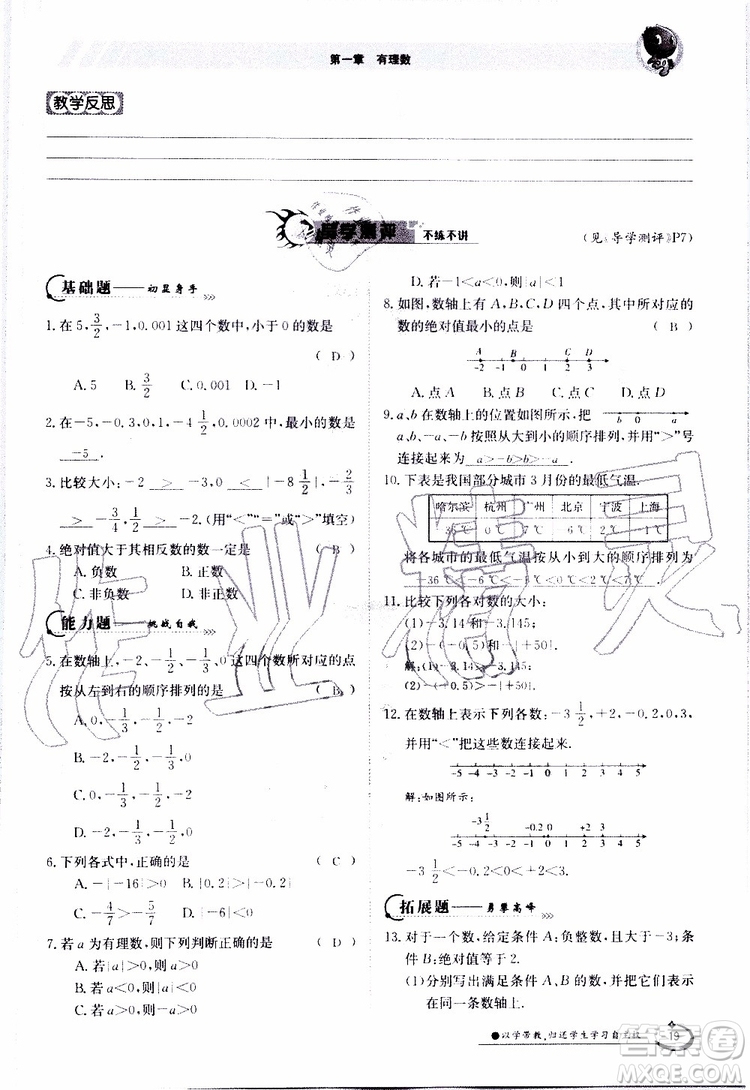 第一章 有理数
教学反思
导学测评 不练不讲
(见《导学测评》P7)
基础题——初显身手
1.在5,3/2,-1,0.001这四个数中,小于0的数是
( D )
A.5 B.3/2 C.0.001 D.-1
2.在-5,-0.3,0,-4 1/2,0.0002中,最小的数是
-5 .
3.比较大小:-2 > -3,0 < |-8 1/2|,
-3/4 > -2.(用“<”“=”或“>”填空)
4.绝对值大于其相反数的数一定是 ( B )
A.负数 B.正数
C.非负数 D.非正数
能力题——挑战自我
5.在数轴上,-2、-1/2、-1/3、0这四个数所对应的点
按从左到右的顺序排列的是
A.0,-1/3,-1/2,-2
B.-2,-1/2,-1/3,0
C.0,-1/2,-1/3,-2
D.-2,-1/3,-1/2,0
6.下列各式中,正确的是 ( C )
A.-|-16|>0 B.|0.2|>|-0.2|
C.-4/7>-5/7 D.|-6|<0
7.若a为有理数,则下列判断正确的是 ( D )
A.若|a|>0,则a>0 B.若|a|>0,则a<0
C.若a<0,则-a<0
D.若-1<a<0,则|a|<1
8.如图,数轴上有A,B,C,D四个点,其中所对应的
数的绝对值最小的点是 ( B )
A B C D
-2 -1 0 1 2
A.点A B.点B C.点C D.点D
9.a、b在数轴上的位置如图所示,把
b a 0
a、-a、b、-b按照从大到小的顺序排列,并用“>”号
连接起来为 -b>-a>a>b
10.下表是我国部分城市3月份的最低气温.
哈尔滨 杭州 广州 北京 宁波 上海
将各城市的最低气温按从小到大的顺序排列为
11.比较下列各对数的大小:
(1)-3.14与-3.145;
(2)-(-0.5)与-|+50|.
解:(1)-3.14>-3.145;
(2)-(-0.5)>-|+50|.
12.在数轴上表示下列各数:-3 1/2,+2,-0.2,0,3,
并用“<”把这些数连接起来.
-5 -4 -3 -2 -1 0 1 2 3 4 5
解:如图所示:
-3 1/2 -0.2 0 +2 3
-5 -4 -3 -2 -1 0 1 2 3 4 5
-3 1/2<-0.2<0<+2<3
拓展题——勇攀高峰
13.对于一个数,给定条件A:负整数,且大于-3;条
件B:绝对值等于2.
(1)分别写出满足条件A、B的数,并把它们表示
在同一条数轴上.
●以学带教,归还学生学习自主权
19
作业精灵